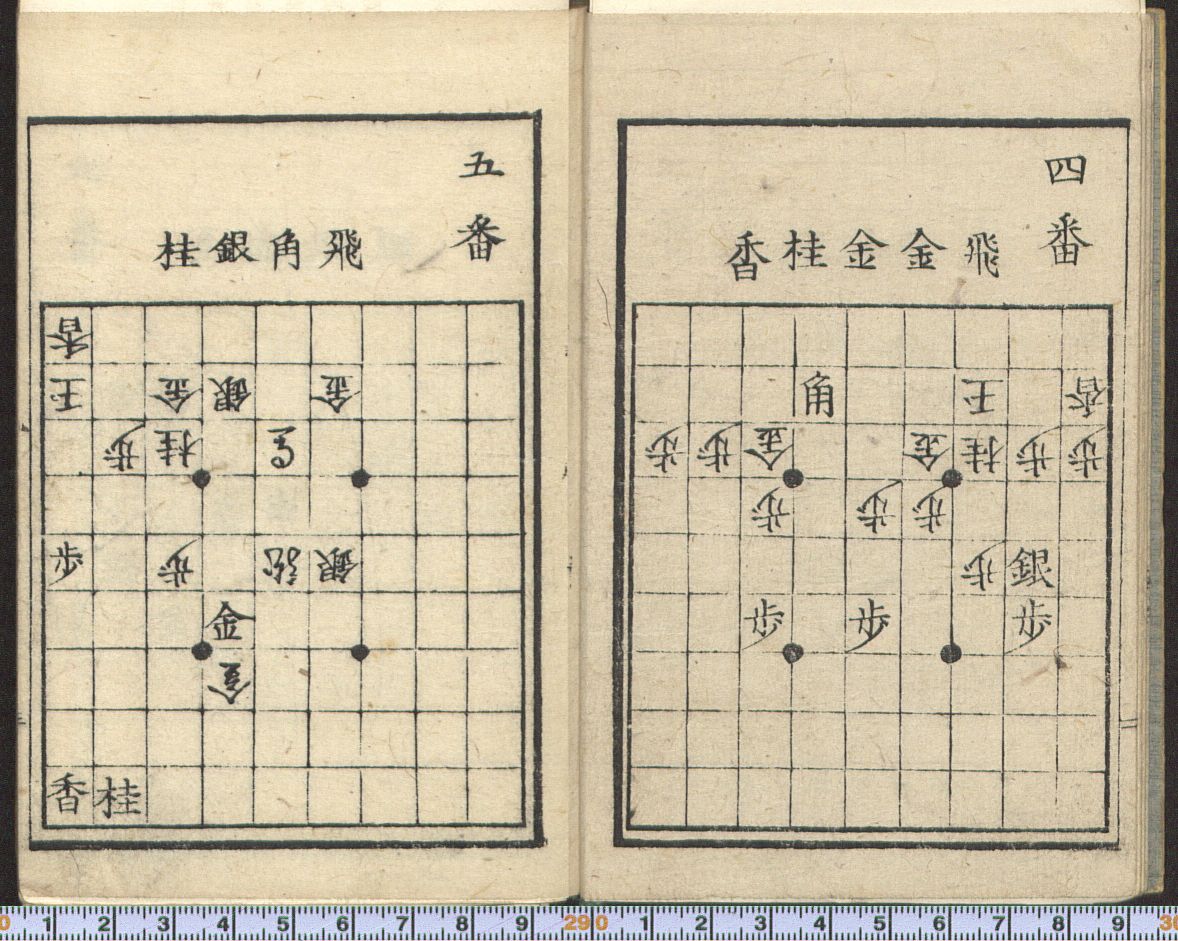 四番
飛金金桂香
香王角
歩歩桂金金歩歩
歩歩歩
銀歩
歩歩歩
五番
飛角銀桂
香
金銀金王
馬桂歩
銀龍歩歩
金
金
桂香
0 1 2 3 4 5 6 7 8 9 29 0 1 2 3 4 5 6 7 8 9 30